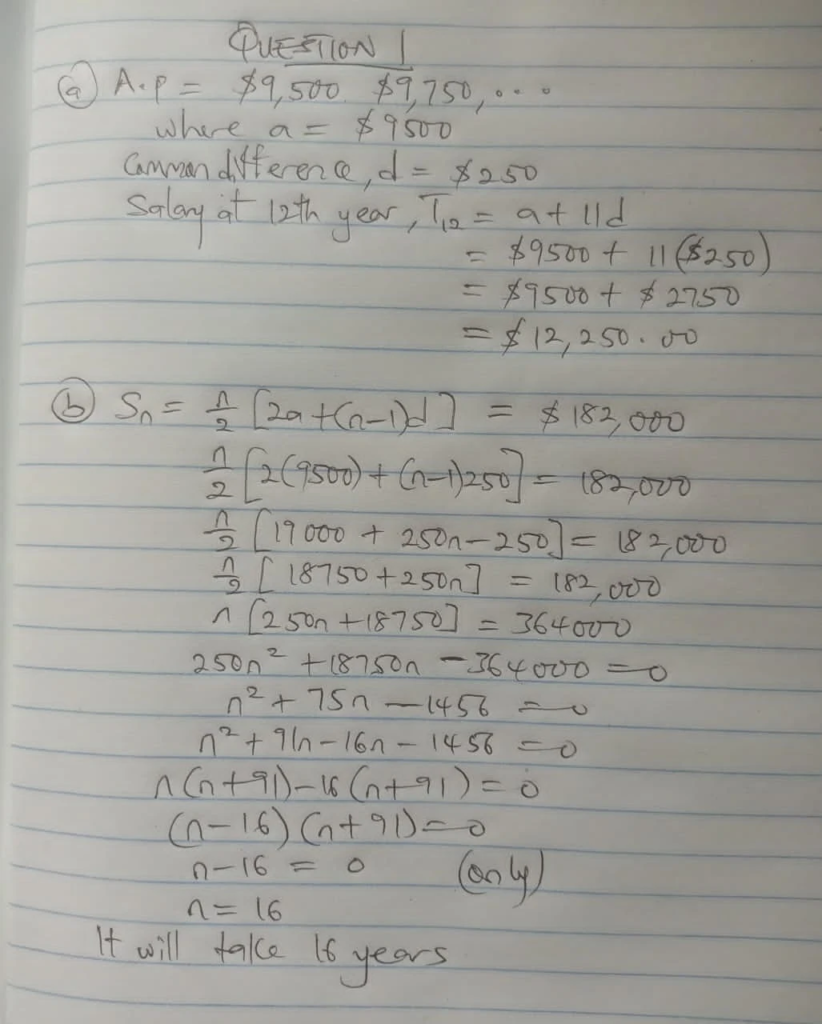 QUESTION 1
(a) A.P = $9,500 $9,750, ...
where a = $9500
Common difference, d = $250
Salary at 12th year, T₁₂ = a + 11d
= $9500 + 11($250)
= $9500 + $2750
= $12,250.00
(b) Sₙ = n/2 [2a + (n-1)d] = $182,000
n/2 [2(9500) + (n-1)250] = 182,000
n/2 [19000 + 250n - 250] = 182,000
n/2 [18750 + 250n] = 182,000
n [250n + 18750] = 364000
250n² + 18750n - 364000 = 0
n² + 75n - 1456 = 0
n² + 91n - 16n - 1456 = 0
n(n+91) - 16(n+91) = 0
(n-16)(n+91) = 0
n - 16 = 0 (only)
n = 16
It will take 16 years